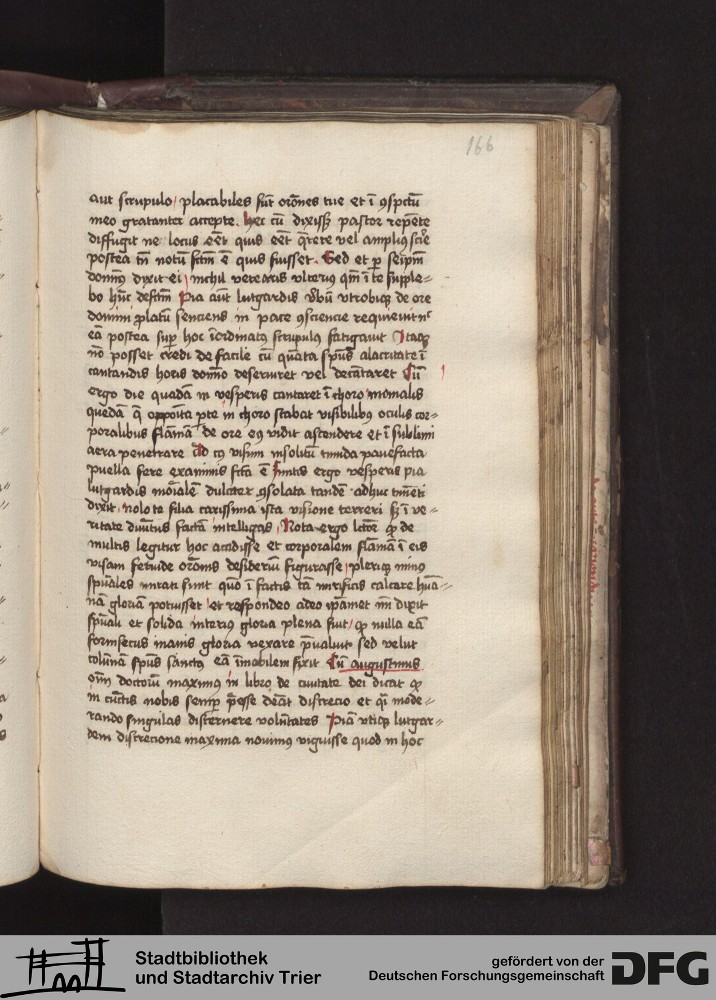 166
aut scrupulo placabiles sūt orōnes tue et ī ɔspctū
meo gratanter accepte. Hec cū dixiss; pastor repēte
diffugit ne locus eēt quis eēt q̄rere vel ampliꝰ scīe
postea tn̄ notū fctm̄ ē quis fuisset. Sed et ꝑ seipm̄
domnꝰ dyxit ei nichil verearis vlteriꝰ qm̄ ī te supple=
bo hūc defctm̄ Pia aūt lutgardis v̄bū vtrobiqꝫ de ore
domini ꝓlatū senciens in pace ɔsciencie requieuit nᶜ
eā postea suꝑ hoc īordinatꝰ scrupulꝰ fatigauit Itaqꝫ
nō posset credi de facile cū quāta spūs alacritate ī
cantandis horis domno deseruiret vel decātaret Cū
ergo die quadā in vesperis cantaret ī choro monialis
quedā q̄ opposita pte in choro stabat visibilibꝰ oculis cor=
poralibus flāmā de ore eꝰ vidit ascendere et ī sublimi
aera penetrare Ad cꝰ visum insolitū timida pauefacta
puella fere exanimis fcta ē finitis ergo vesperis pia
lutgardis moīalē dulciter ɔsolata tandē adhuc timēti
dyxit nolo ta filia carissima ista visione terreri sꝫ ī ve=
ritate diuītus factā intelligas Nota ergo lctōr ꝙ de
multis legitur hoc accidisse et corporalem flāmā ī eis
visam feruide orōnis desideriū figurasse pleriqꝫ nimꝰ
spūales mirati sunt quō ī factis tā mirificis calcare huā=
nā gloriā potuisset et respondeo adeo ip̄amet m̄ dixit
spūali et solida interiꝰ gloria plena fuit ꝙ nulla eā
forinsecus inanis gloria vexare p̄ualuit sed velut
colūnā spūs sanctꝰ eā īmobilem fixit Cū augustinus
om̄ doctorū maximꝰ in libro de ciuitate dei dicat ꝙ
in cūctis nobis semꝑ p̄esse dēāt discrecio et qͣi mode=
rando singulas discernere volūtates Piā vtiqꝫ lutgar=
dem discrecione maxima nouimꝰ viguisse quod in hoc
Stadtbibliothek
und Stadtarchiv Trier
gefördert von der
Deutschen Forschungsgemeinschaft
DFG